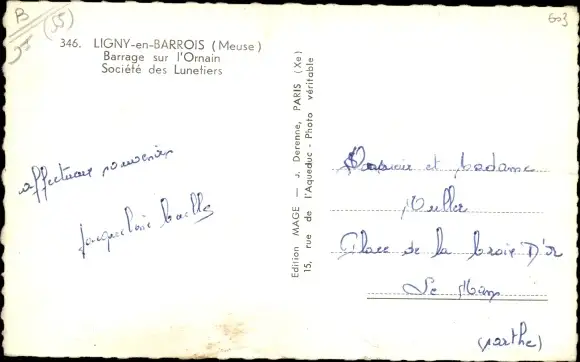 B
(55)
603
346. LIGNY-en-BARROIS (Meuse)
Barrage sur l'Ornain
Société des Lunetiers
affectueux souvenir
Jacqueline
Edition MAGE — J. Derenne, PARIS (Xe)
15, rue de l'Aqueduc - Photo véritable
Monsieur et Madame
Muller
Place de la Croix D'Or
Le Mans
(Sarthe)